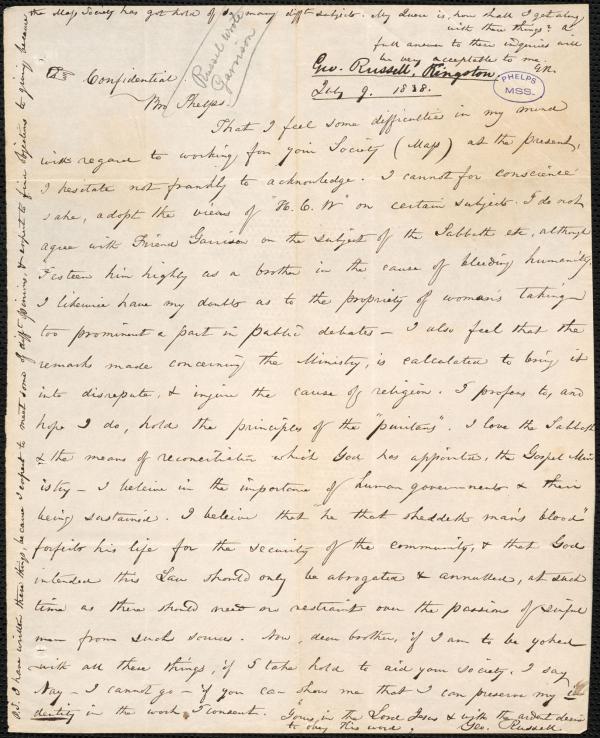 the Mass Society has got hold of so many difft subjects. My Quere is, how shall I get along
with these things? a
full answer to these inquiries will
be very acceptable to me. G.R.
Geo. Russell. Kingston.
July 9. 1838.
PHELPS
MSS.
Russell wrote
Garrison
Confidential
Bro Phelps.
That I feel some difficulties in my mind
with regard to working for your Society (Mass) at the present,
I hesitate not frankly to acknowledge. I cannot for conscience
sake, adopt the views of "H. C. W" on certain subjects. I do not
agree with Friend Garrison on the subject of the Sabbath etc, although
I esteem him highly as a brother in the cause of bleeding humanity
I likewise have my doubts as to the propriety of woman's taking
too prominent a part in public debates – I also feel that the
remarks made concerning the Ministry, is calculated to bring it
into disrepute, & injure the cause of religion. I profess to, and
hope I do, hold the principles of the "puritans". I love the Sabbath
& the means of reconciliation which God has appointed, the Gospel Min
istry – I beleive in the importance of human governments & their
being sustained. I beleive that "he that sheddeth man's blood"
forfeits his life for the security of the community, & that God
intended this Law should only be abrogated & annulled, at such
time as there should need no restraint over the passions of sinful
man from such sources. Now, dear brother, if I am to be yoked
with all these things, if I take hold to aid your society, I say
Nay – I cannot go – if you can show me that I can preserve my i
dentity in the work I consent. Yours, in the Lord Jesus & with the ardent desire
to obey His word. Geo. Russell.
P.S. I have written these things, because I expect to meet some of difft opinions, & expect to find objections to giving because